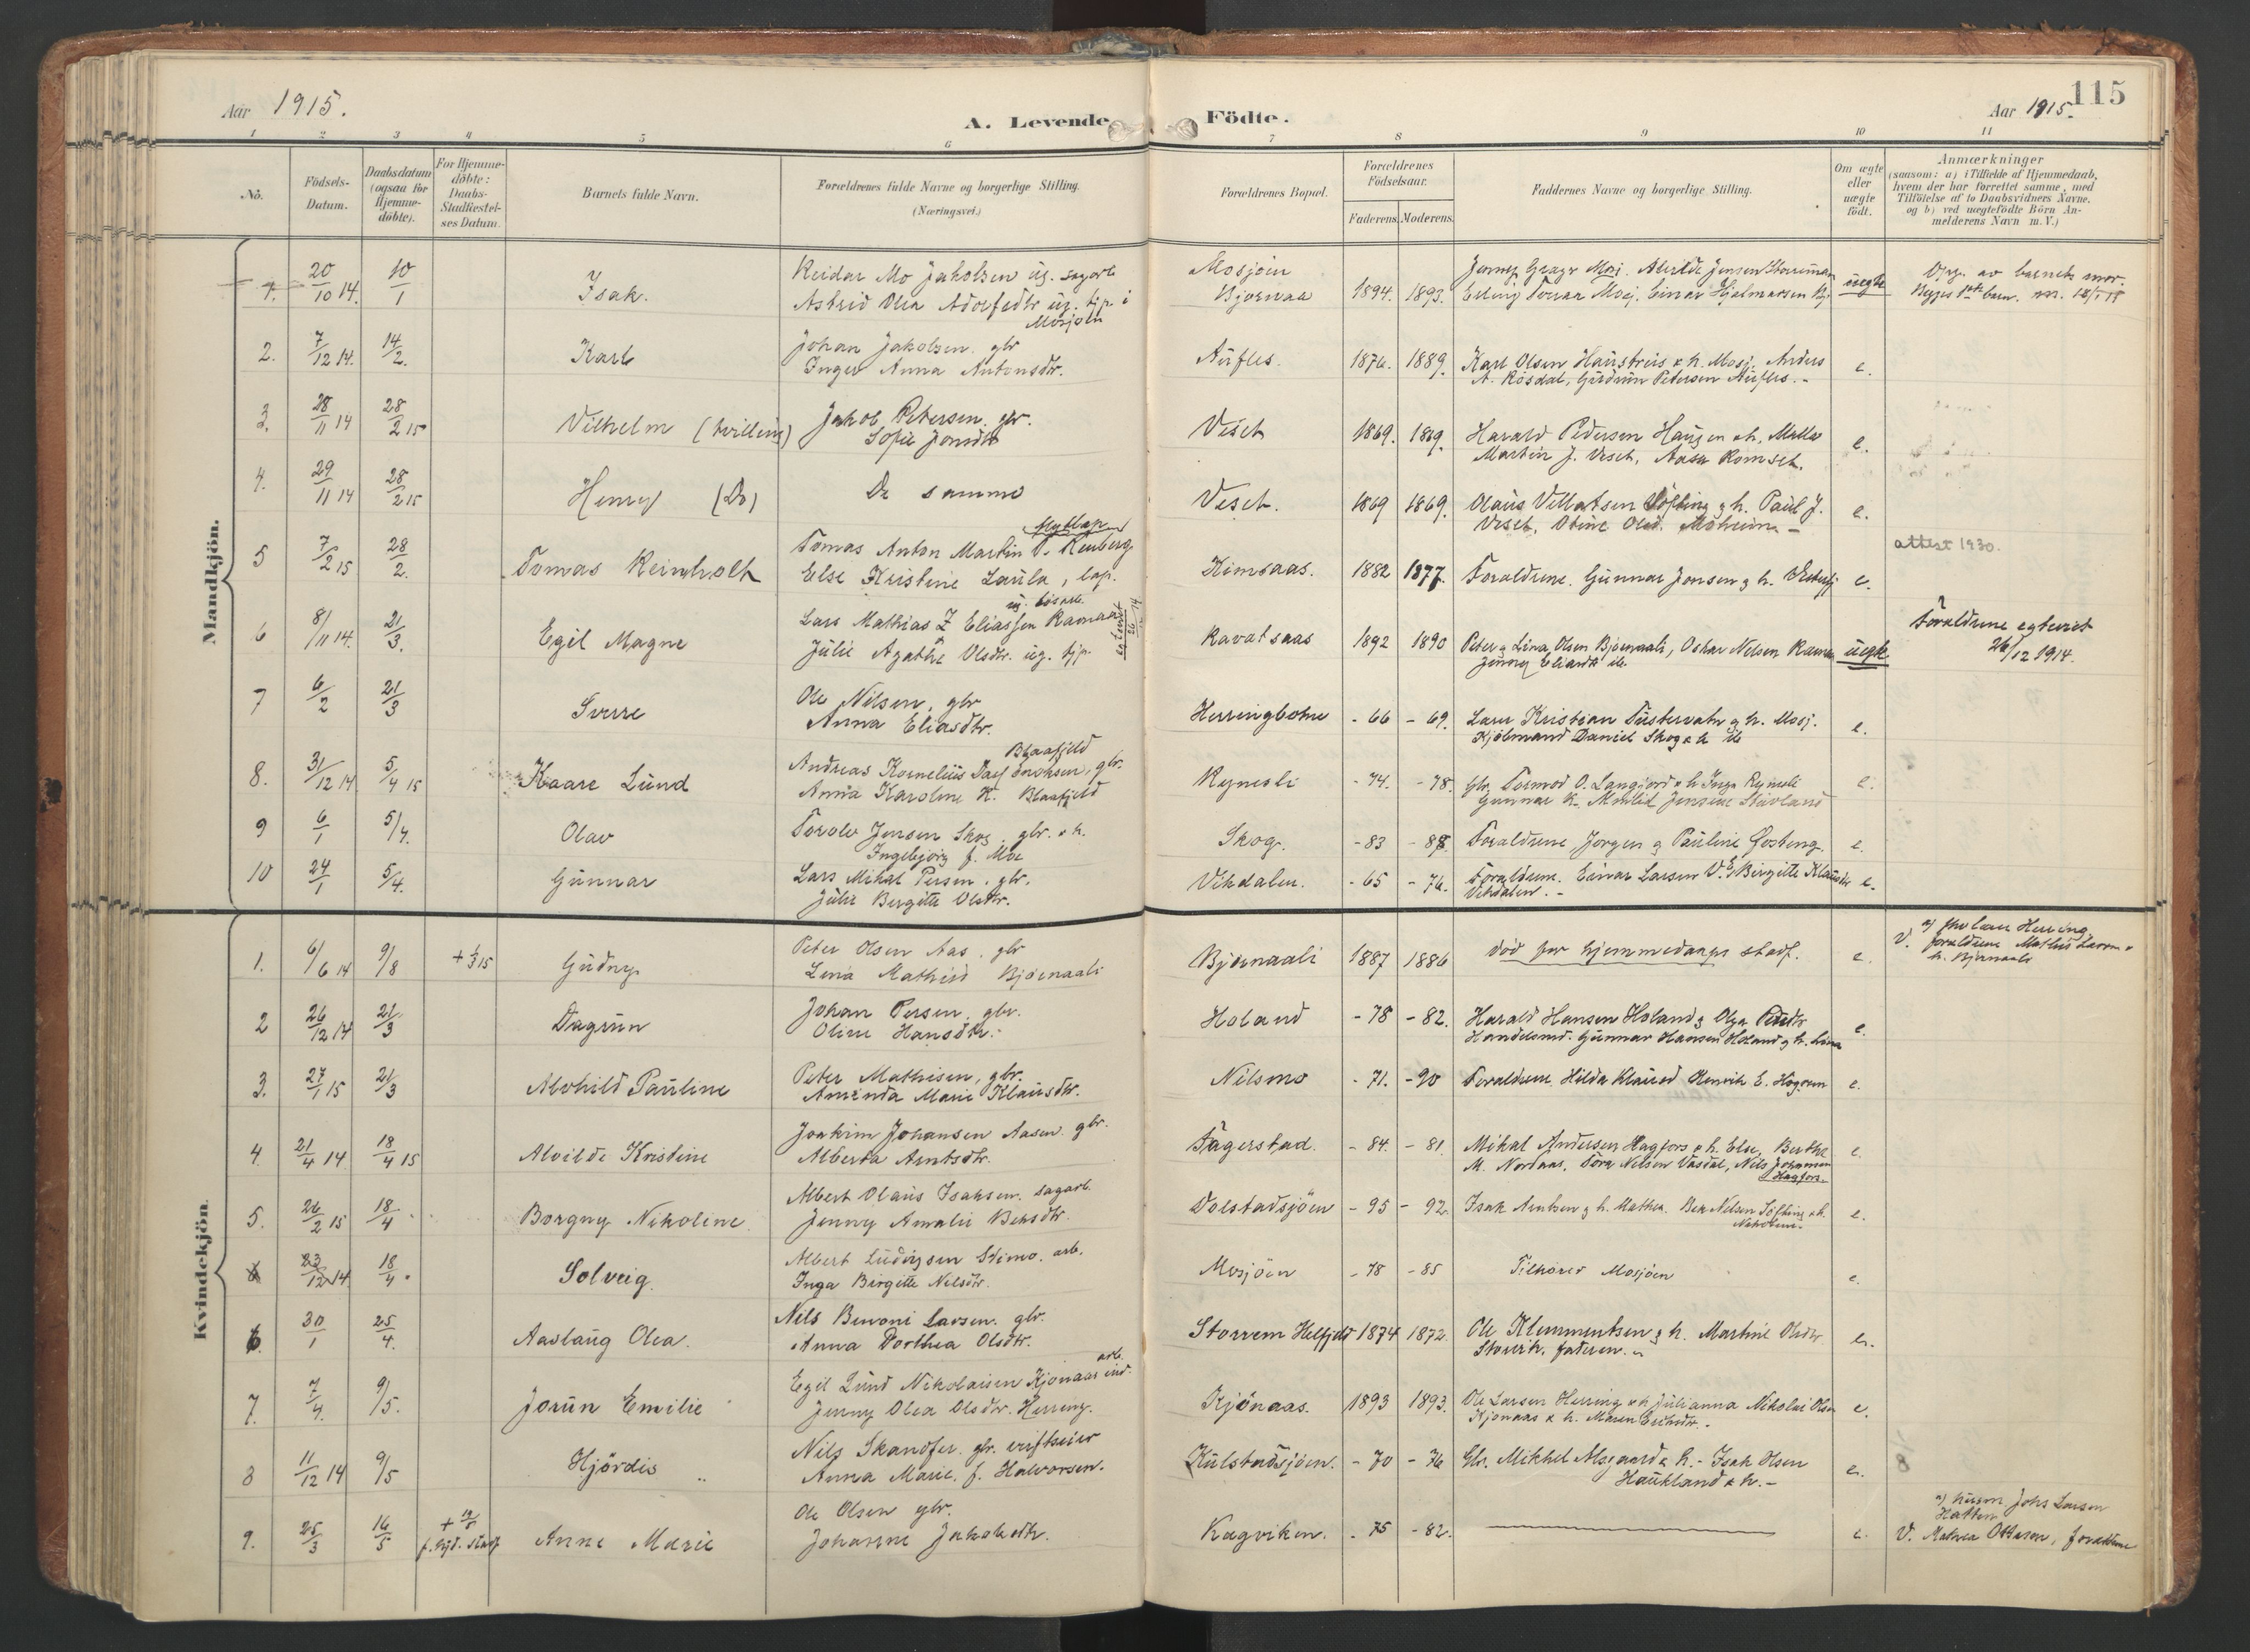 Aar 1915.
A. Levende Födte.
Aar 1915.
115
1 2 3 4 5 6 7 8 9 10 11
No.
Födsels-Datum.
Daabsdatum (ogsaa for Hjemme-döbte).
For Hjemme-döbte: Daabs-Stadfestel-ses Datum.
Barnets fulde Navn.
Forældrenes fulde Navne og borgerlige Stilling.
(Næringsvei.)
Forældrenes Bopæl.
Forældrenes Födselsaar.
Faderens. Moderens.
Faddernes Navne og borgerlige Stilling.
Om ægte eller uægte födt.
Anmærkninger
(saasom: a) i Tilfælde af Hjemmedaab, hvem der har forrettet samme, med Tilföielse af to Daabsvidners Navne. og b) ved uægtefödte Börn An-melderens Navn m. V.)
Mandkjön.
1. 20/10 14. 10/1 Isak. Reidar Mo Jakobsen ug. sagarb
Astrid Olea Adolfsdtr ug. tjp. i Mosjøen
Mosjøen
Bjornaa 1894. 1893. uegte
Opg. av barnets mor.
2. 7/12 14. 14/2. Karl Johan Jakobsen. gbr
Inger Anna Antonsdtr.
Aufles. 1876. 1889. Karl Olsen Haustreis & h. Mosj. Anders
A. Rosdal, Gudrun Petersen Aufles. - e.
3. 28/11 14 28/2 15 Vilhelm (tvilling) Jakob Petersen. gbr.
Sofie Jonsdtr
Veset 1869. 1869. Harald Pedersen Haugen & h.
Martin J. Veset, Aasa Romset. e.
4. 29/11 14 28/2 15 Henry (Do) De samme
Veset. 1869 1869. Olaus Villatsen Söfting & h. Paul J.
Veset, Otine Olsd. Moheim - e.
5 7/2 15 28/2. Tomas Reinholt Tomas Anton Martin P. Renberg flytlap
Else Kristine Laula, lap.
Kimsaas. 1882 1877. Foraldrene. Gunnar Jonsen & h. e.
attest 1930.
6 8/11 14. 21/3. Egil Magne Lars Mathias Z Eliassen Ramaa ug. løsarb.
Julie Agathe Olsdtr. ug. tjp.
Kavatsaas 1892 1890 Peter & Lina Olsen Bjornaali, Oskar Nelsen
Jenny uegte
Foraldrene egteviet
26/12 1914.
7 6/2 21/3 Sverre Ole Nilsen, gbr
Anna Eliasdtr.
Herringbotne - 66 - 69. Kristian Tustervatn & h. Mosj.
Kjøbmand Daniel Skog & h e.
8. 31/12 14 5/4 15 Kaare Lund Andreas Kornelius Blaafjeld, gbr.
Anna Karoline K. Blaafjeld
Rynesli - 74. - 78. Gbr. Tormod O. Langjord & h Inga Rynesli
Gunnar K. e.
9 6/1 5/4. Olav Torolv Jensen Skog. gbr. & h.
Ingebjorg f. Moe
Skog. - 83 - 88. Foraldrene, Jorgen & Pauline Fosteng. e.
10 24/1 5/4. Gunnar Lars Mikal Persen. gbr.
Julie Bergitte Olsdtr.
Vikdalen. - 65 - 76. Foraldrene. Einar Larsen V. & Birgitte Klausdtr
Vikdalen. - e.
Kvindekjön.
1. 6/6 14 9/8 + 1/3 15 Gudny Peter Olsen Aas. gbr
Lina Mathisd Bjørnaali
Bjørnaali 1887 1886 død for hjemmedaaps stadf. e.
V. foraldrene Mathis Larsen &
h. Bjørnaali
2 26/12 14 21/3 Dagrun Johan Persen gbr.
Oline Hansdtr.
Holand - 78 - 82. Harald Hansen Holand & Olga
Handelsmd. Gunnar Hansen Holand & h. Lina e.
3. 27/1 15 21/3 Alvhild Pauline Peter Mathisen, gbr.
Aminda Marie Klausdtr.
Nilsmo - 71. - 90 Foraldrene. Hilda Klausd Henrik E. Hagsen e.
4 21/4 14 18/4 15 Alvilde Kristine Joakim Johansen Aasen. gbr.
Alberta Arntsdtr.
Fagerstad. - 84. - 81. Mikal Andersen Hagfors & h. Else, Berthe
M. Nordaas, Tora Nelsen Vasdal, Nils Johansen
Hagfors. e.
5. 26/2 15 18/4 Borgny Nikoline Albert Olaus Isaksen. sagarb.
Jenny Amalie Bensdtr.
Dolstadsjöen - 95 - 92. Isak Arntsen & h. Mathea. Ben Nelsen Söfting & h.
Nikoline. e.
6 23/12 14 18/4. Solveig Albert Ludvigsen arb.
Inga Birgitte Nelsdtr.
Mosjöen - 78 - 85 Tilhører Mosjöen e.
6. 30/1 25/4. Aaslaug Olea. Nils Benoni Larsen. gbr.
Anna Dorthea Olsdtr.
Storrem Helfjeld 1874 1872. Ole Klemmentsen & h. Martine Olsdtr
faderen. e.
7. 7/4. 9/5. Jorun Emilie Egil Lund Nikolaisen Kjonaas arb.
Jenny Olea Olsdtr. Herring.
Kjönaas. 1893 1893. Ole Larsen Herring & h Julianna Nikolai Olsen
Kjonaas & h. Maren e.
8 11/12 14 9/5 Hjördis Nils Skandfer. gbr.
Anna Marie. f. Halvorsen.
Kulstadsjöen. - 70 - 76 Gbr. Mikkel Alsgaard & h. - Isak Olsen
Haukland & h. - e.
9. 25/3 16/5 Anne Marie Ole Olsen gbr.
Johanne Jakobsdtr.
Kagviken. - 75 - 82. e.
a) husm. Johs Larsen
Hatten
V. Mathea Ottesen, foraldrene